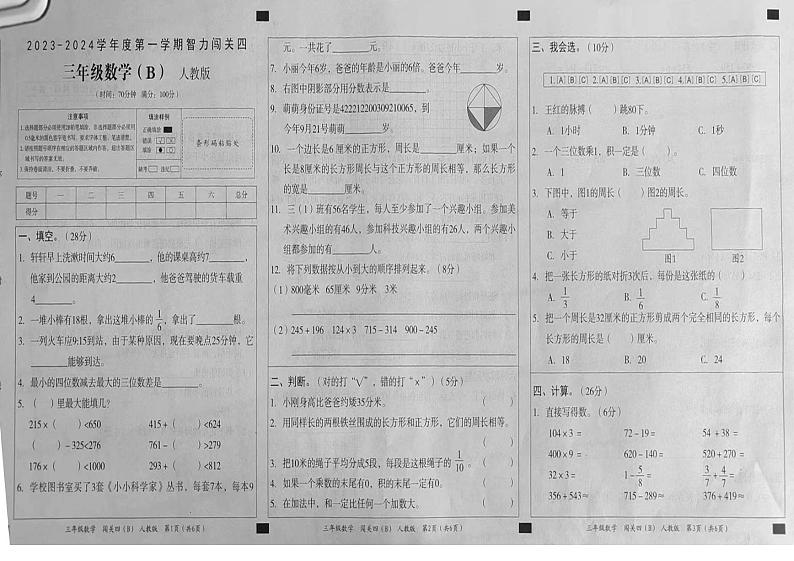 2023-2024学年度第一学期智力闯关四
三年级数学（B） 人教版
（时间：70分钟 满分：100分）
注意事项
填涂样例
正确填涂
错误
填涂
缺考
条形码粘贴处
题号 一 二 三 四 五 六 总分
得分
一、填空。（28分）
1. 轩轩早上洗漱时间大约6________，他的课桌高约7________，
他家到公园的距离大约2________，他爸爸驾驶的货车载重
4________。
2. 一堆小棒有18根，拿出这堆小棒的1/6，拿出了________根。
3. 一列火车应9:15到站，由于某种原因，现在要晚点25分钟，它
________能够到达。
4. 最小的四位数减去最大的三位数差是________。
5. （ ）里最大能填几？
215×（ ）<650 415+（ ）<624
（ ）-325<276 761-（ ）>279
176×（ ）<1000 293+（ ）<812
6. 学校图书室买了3套《小小科学家》丛书，每套7本，每本9
三年级数学 闯关四（B） 人教版 第1页（共6页）
元。一共花了________元。
7. 小丽今年6岁，爸爸的年龄是小丽的6倍。爸爸今年________岁。
8. 右图中阴影部分用分数表示是________。
9. 萌萌身份证号是422212200309210065，到
今年9月21号萌萌________岁。
10. 一个边长是6厘米的正方形，周长是________厘米；如果一个
长是8厘米的长方形周长与这个正方形的周长相等，那么长方形
的宽是________厘米。
11. 三（1）班有56名学生，每人至少参加了一个兴趣小组。参加美
术兴趣小组的有46人，参加科技兴趣小组的有26人，两个兴趣小
组都参加的有________人。
12. 将下列数据按从小到大的顺序排列起来。（8分）
（1）800毫米 65厘米 9分米 3米
（2）245+196 124×3 715-314 900-245
二、判断。（对的打“√”，错的打“×”）（5分）
1. 小刚身高比爸爸约矮35分米。 （ ）
2. 用同样长的两根铁丝围成的长方形和正方形，它们的周长相等。
（ ）
3. 把10米的绳子平均分成5段，每段是这根绳子的1/10。 （ ）
4. 如果一个乘数的末尾有0，积的末尾一定有0。 （ ）
5. 在加法中，和一定比任何一个加数大。 （ ）
三年级数学 闯关四（B） 人教版 第2页（共6页）
三、我会选。（10分）
1.[A][B][C] 2.[A][B][C] 3.[A][B][C] 4.[A][B][C] 5.[A][B][C]
1. 王红的脉搏（ ）跳80下。
A. 1小时 B. 1分钟 C. 1秒
2. 一个三位数乘1，积一定是（ ）。
A. 1 B. 三位数 C. 四位数
3. 下图中，图1的周长（ ）图2的周长。
A. 等于
B. 大于
C. 小于
图1 图2
4. 把一张长方形的纸对折3次后，每份是这张纸的（ ）
A. 1/3 B. 1/6 C. 1/8
5. 把一个周长是32厘米的正方形剪成两个完全相同的长方形，每个
长方形的周长是（ ）厘米。
A. 18 B. 20 C. 24
四、计算。（26分）
1. 直接写得数。（6分）
104×3= 72-19= 54+38=
400×9= 620-140= 520+270=
32×3= 1-5/8= 3/7+4/7=
356+543≈ 715-289≈ 376+419≈
三年级数学 闯关四（B） 人教版 第3页（共6页）